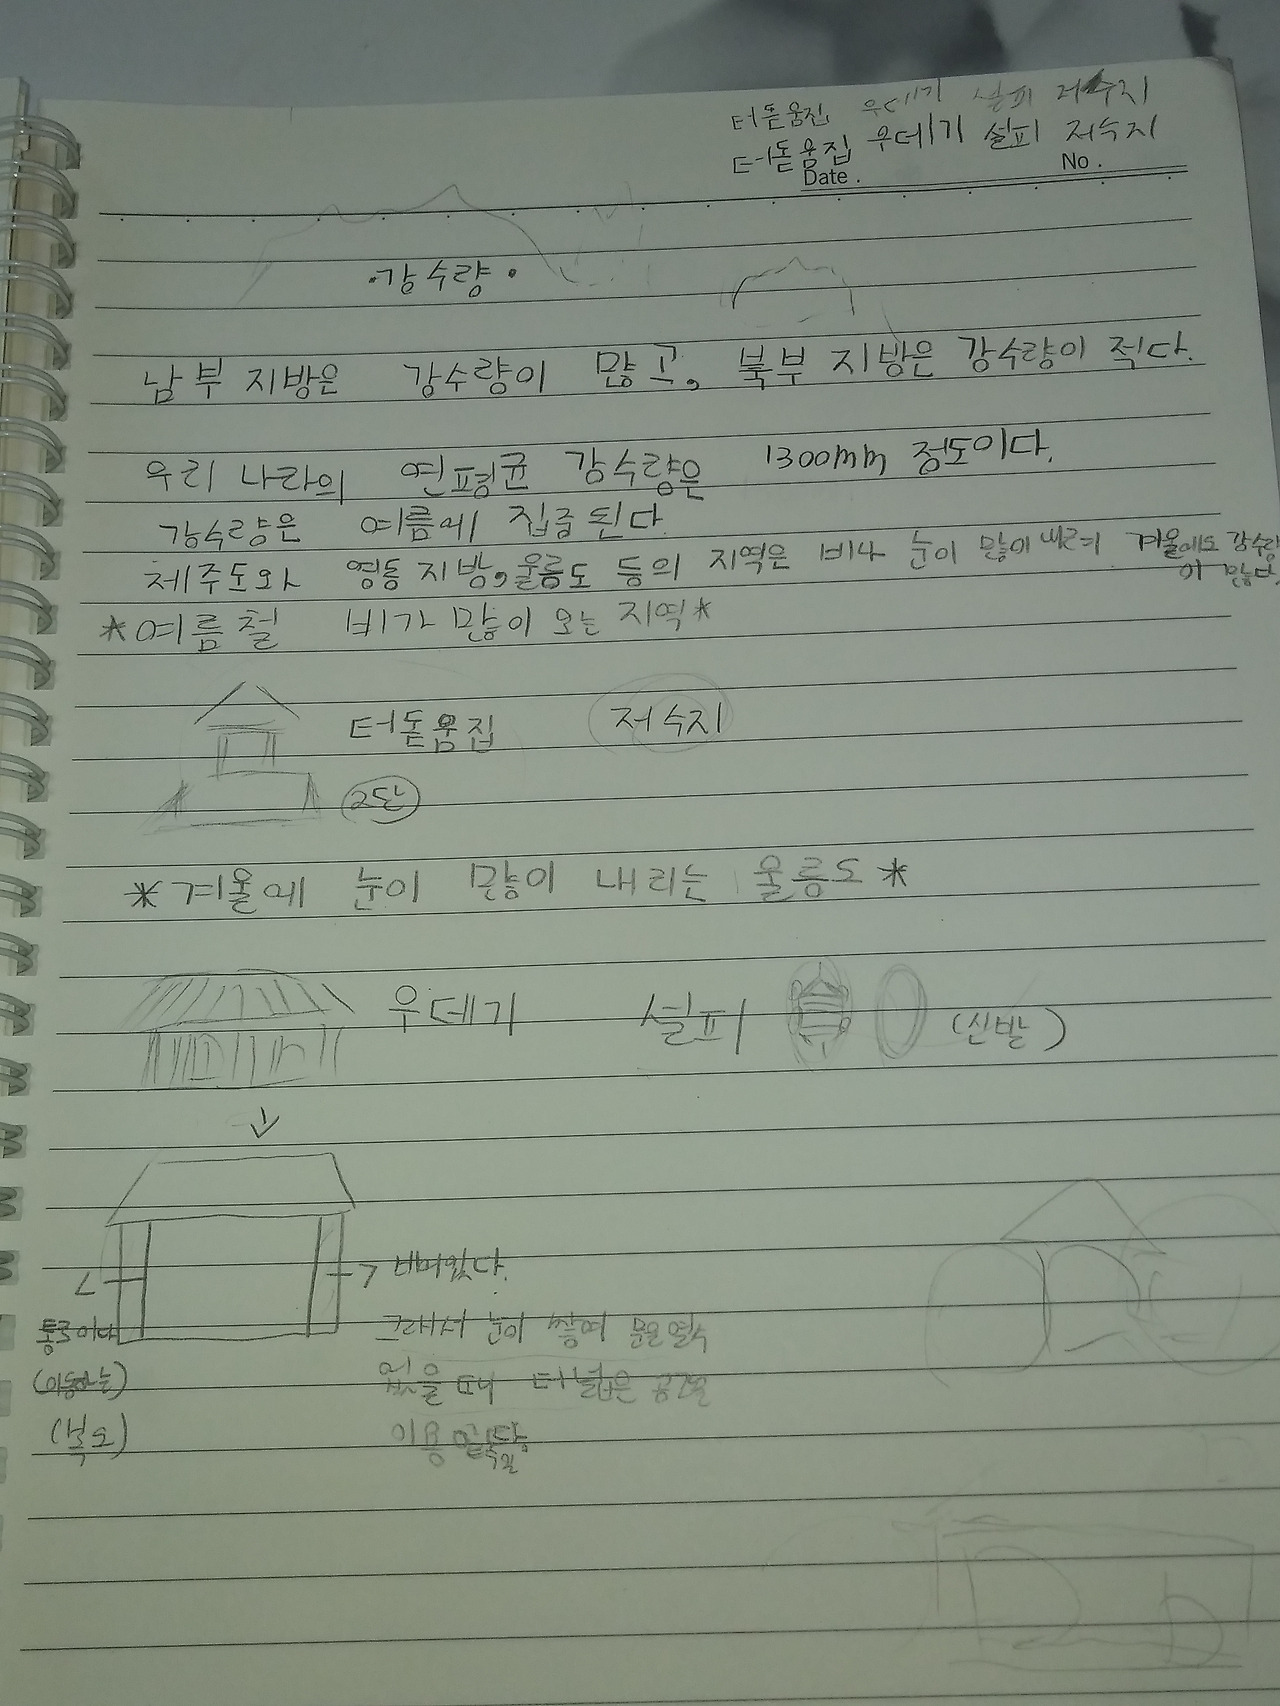 터돋움집 우데기 설피 저수지
터돋움집 우데기 설피 저수지
Date .
No .
·강수량·
남부 지방은 강수량이 많고, 북부 지방은 강수량이 적다.
우리 나라의 연평균 강수량은 1300mm 정도이다.
강수량은 여름에 집중 된다.
제주도와 영동 지방, 울릉도 등의 지역은 비나 눈이 많이 내려 겨울에도 강수량
이 많다.
*여름철 비가 많이 오는 지역*
터돋움집 저수지
2단
*겨울에 눈이 많이 내리는 울릉도*
우데기 설피 (신발)
비어있다.
통로이다 그래서 눈이 쌓여 문을 열수
(이동하는) 없을 때 더 넓은 공간을
(복도) 이용